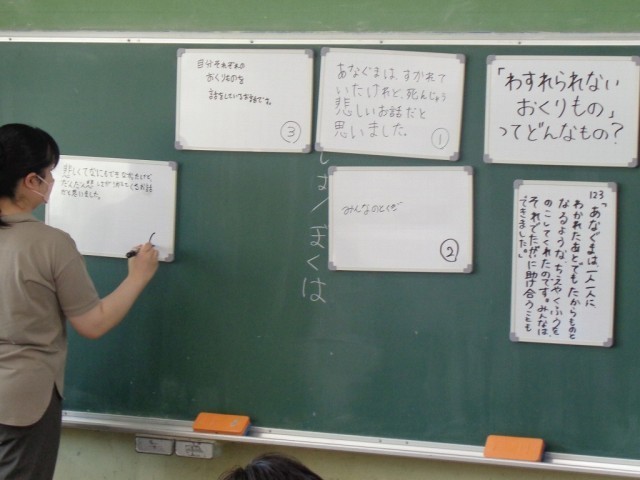 「わすれられない
おくりもの」
ってどんなもの?
123
「あなぐまは、一人一人に
わかれたあとでもたからものと
なるような、ちえやくふうを
のこしてくれたのです。みんなは、
それでたがいに助け合うことも
できました。」
あなぐまは、すかれて
いたけれど、死んじゃう
悲しいお話だと
思いました。
①
みんなのとくだ
②
自分それぞれの
おくりものを
話をしているお話です。
③
悲しくてなにもできなかったけど、
だと思いました。
ぼくは